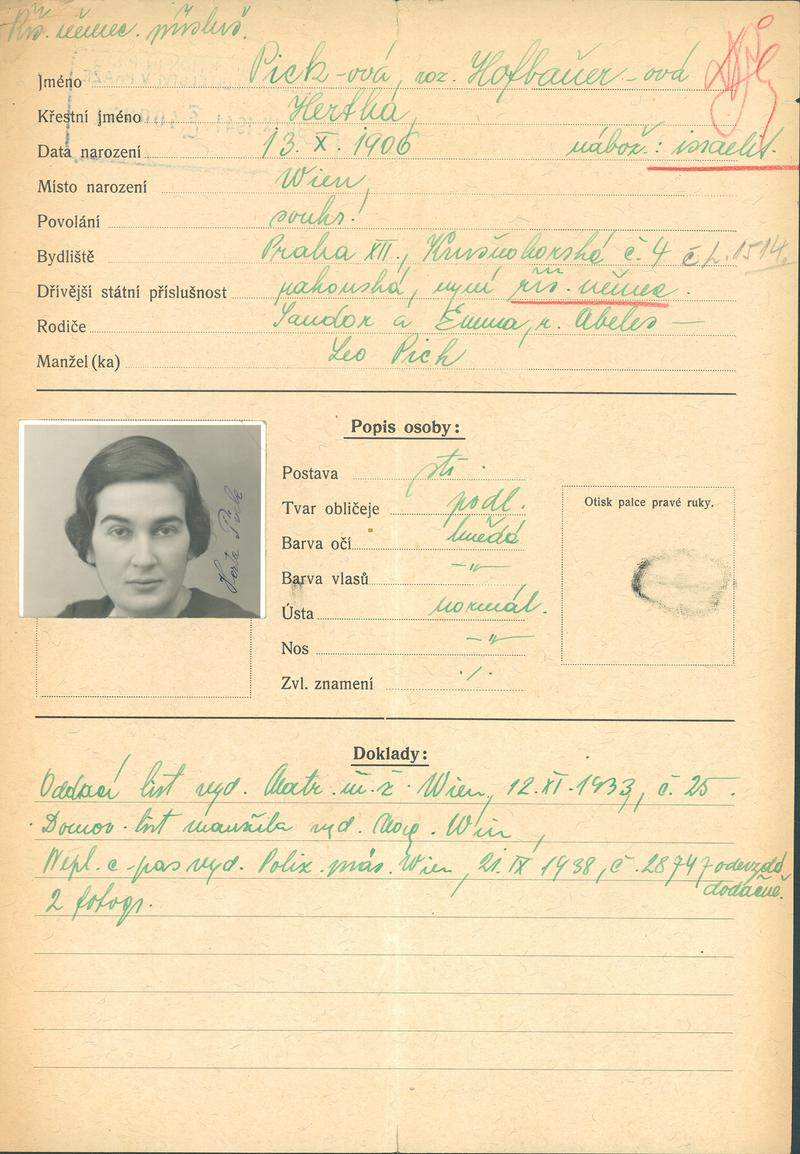 Řís. němec. přísluš.
Jméno Pick-ová, roz. Hofbauer-ová
Křestní jméno Hertha,
Data narození 13. X. 1906 nábož.: israelit.
Místo narození Wien,
Povolání soukr.
Bydliště Praha XII., Krušnohorská č. 4 č.b. 1514.
Dřívější státní příslušnost rakouská, nyní říš. němec.
Rodiče Sandor a Emma, r. Abeles —
Manžel (ka) Leo Pick
Popis osoby:
Postava stř.
Tvar obličeje podl.
Barva očí hnědá
Barva vlasů —"—
Ústa normál.
Nos —"—
Zvl. znamení ./.
Herta Pick
Otisk palce pravé ruky.
Doklady:
Oddací list vyd. Matr. ú. ž. Wien, 12. XI. 1933, č. 25.
Domov. list manžela vyd. Mag. Wien,
Nepl. c-pas vyd. Poliz. Wien, 21. IX 1938, č. 28747 odevzdá
dodáčně.
2 fotogr.